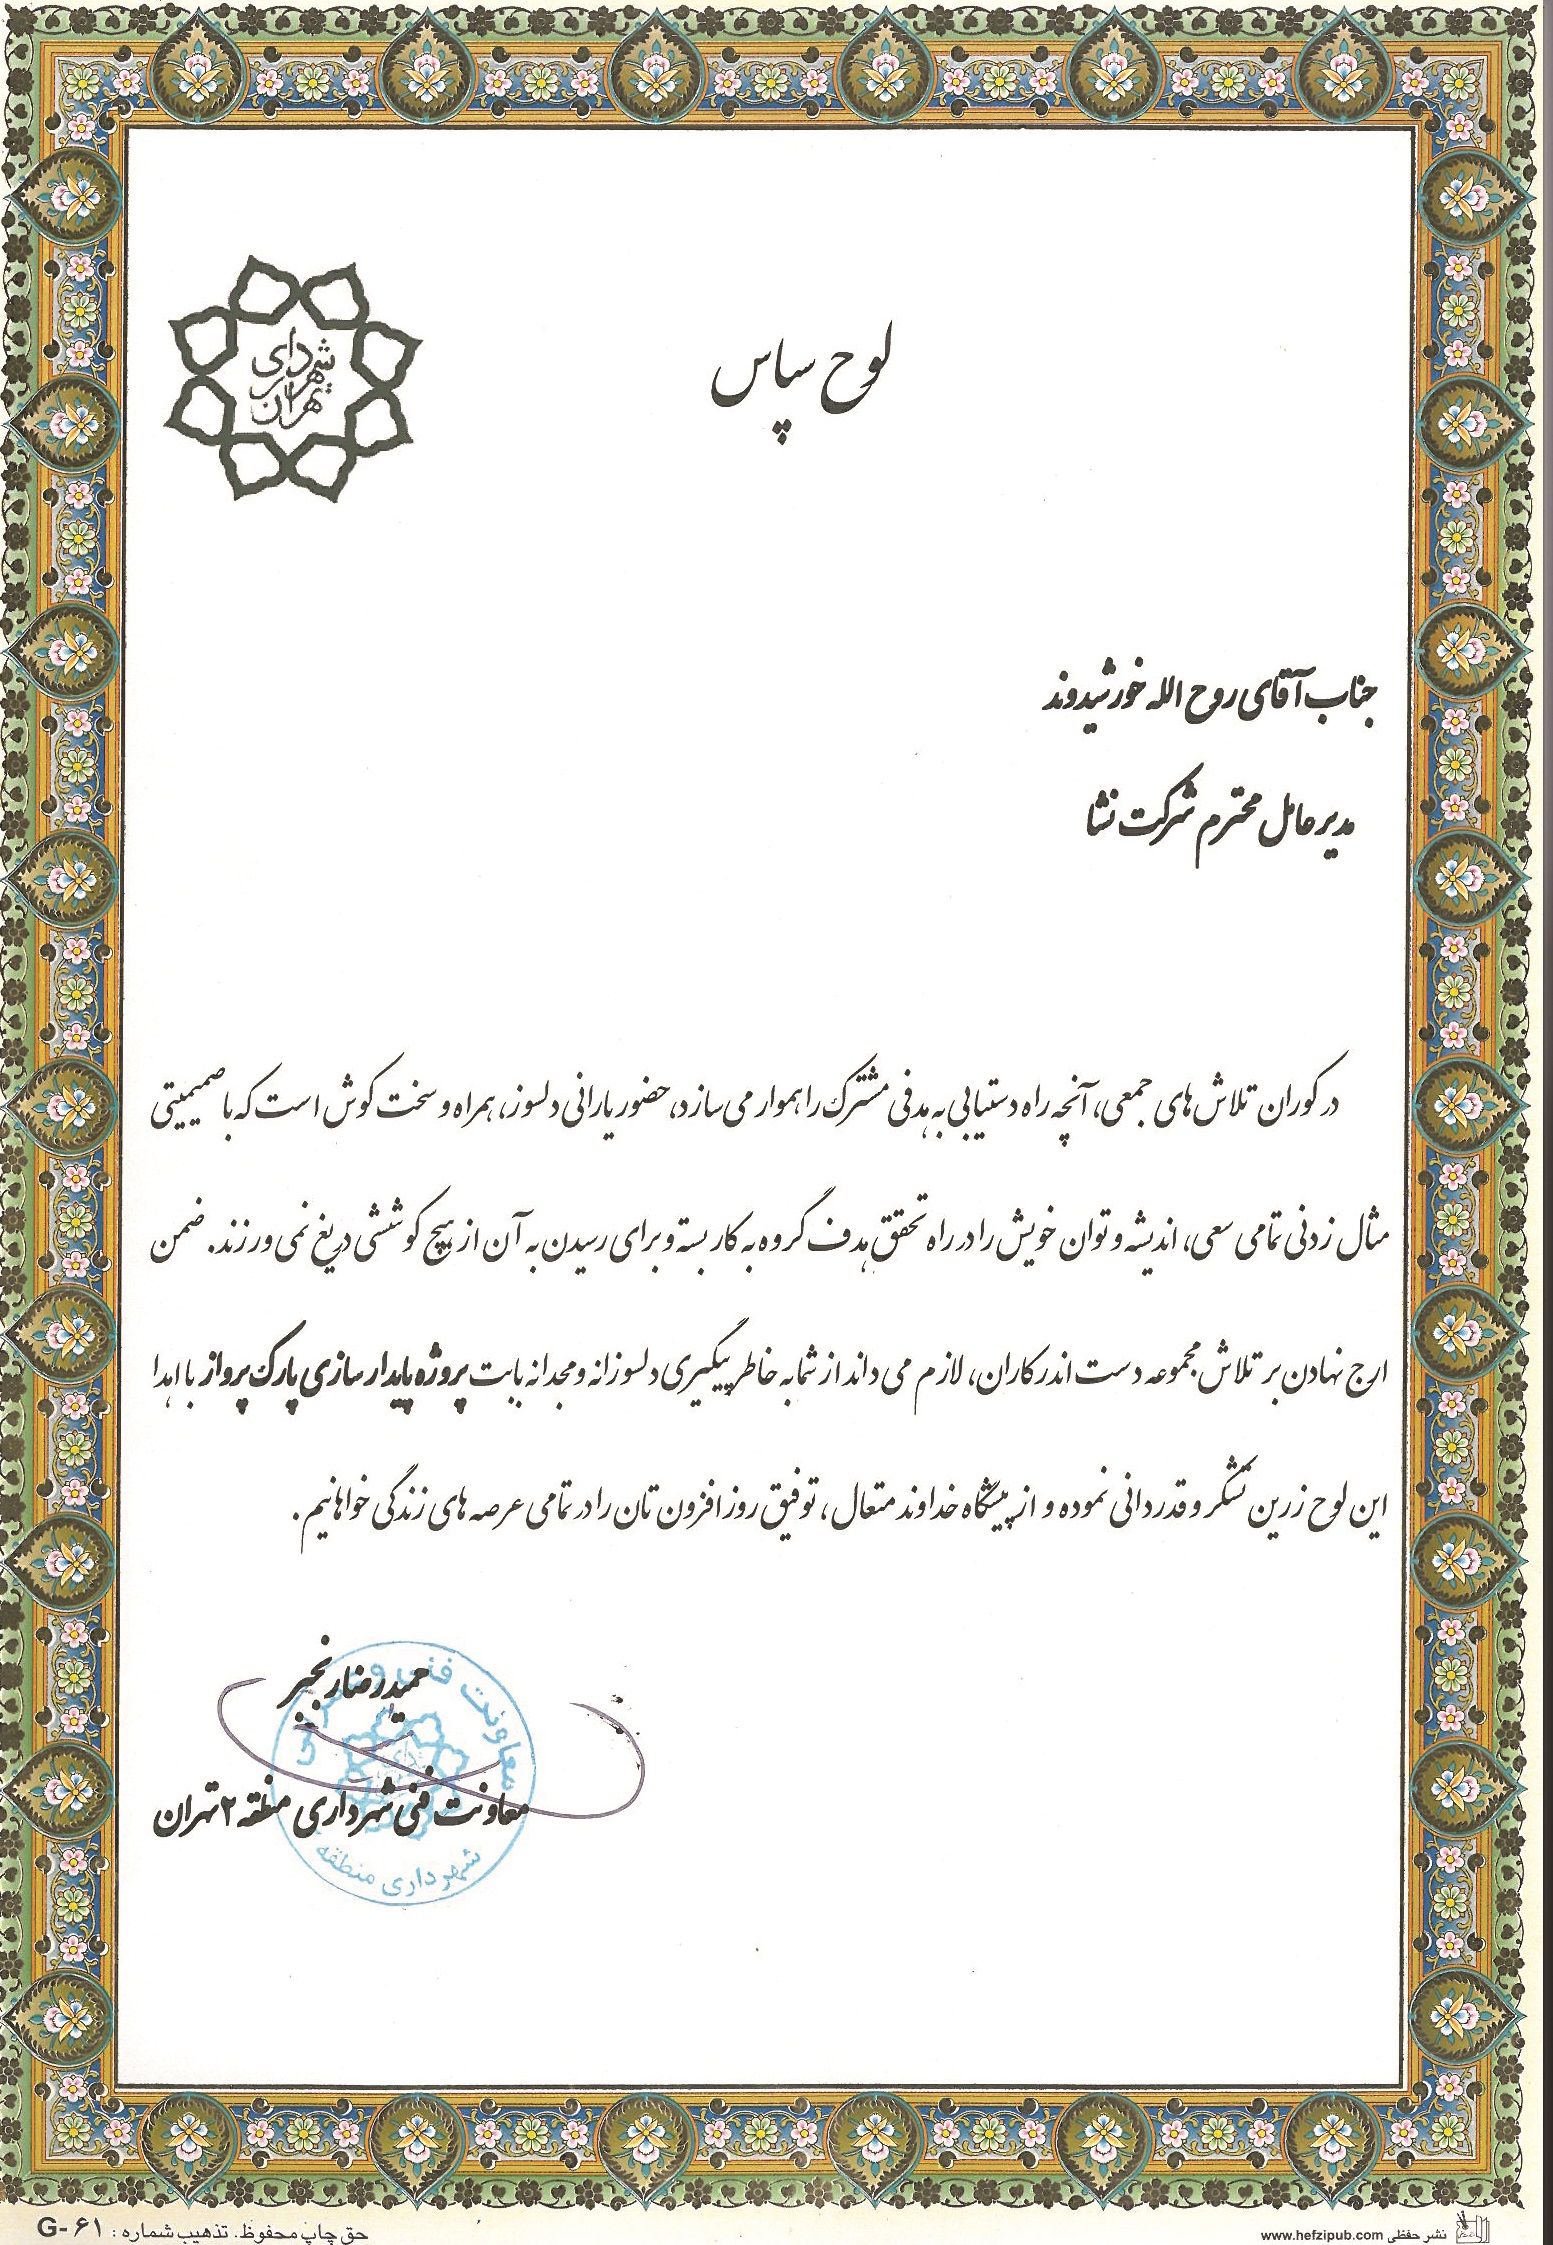 لوح سپاس
شهرداری
تهران
جناب آقای روح الله خورشیدوند
مدیرعامل محترم شرکت نشا
در کوران تلاش های جمعی، آنچه راه دستیابی به هدفی مشترک را هموار می سازد، حضور یارانی دلسوز، همراه و سخت کوش است که با صمیمیتی
مثال زدنی تمامی سعی، اندیشه و توان خویش را در راه تحقق هدف گروه به کار بسته و برای رسیدن به آن از هیچ کوششی دریغ نمی ورزند. ضمن
ارج نهادن بر تلاش مجموعه دست اندرکاران، لازم می داند از شما به خاطر پیگیری دلسوزانه و مجدانه بابت پروژه پایدارسازی پارک پرواز با اهدا
این لوح زرین تشکر و قدردانی نموده و از پیشگاه خداوند متعال، توفیق روزافزون تان را در تمامی عرصه های زندگی خواهانیم.
حمیدرضا رنجبر
معاونت فنی شهرداری منطقه ۲ تهران
معاونت فنی و
شهرداری منطقه
حق چاپ محفوظ. تذهیب شماره : G-۶۱
نشر حفظی www.hefzipub.com